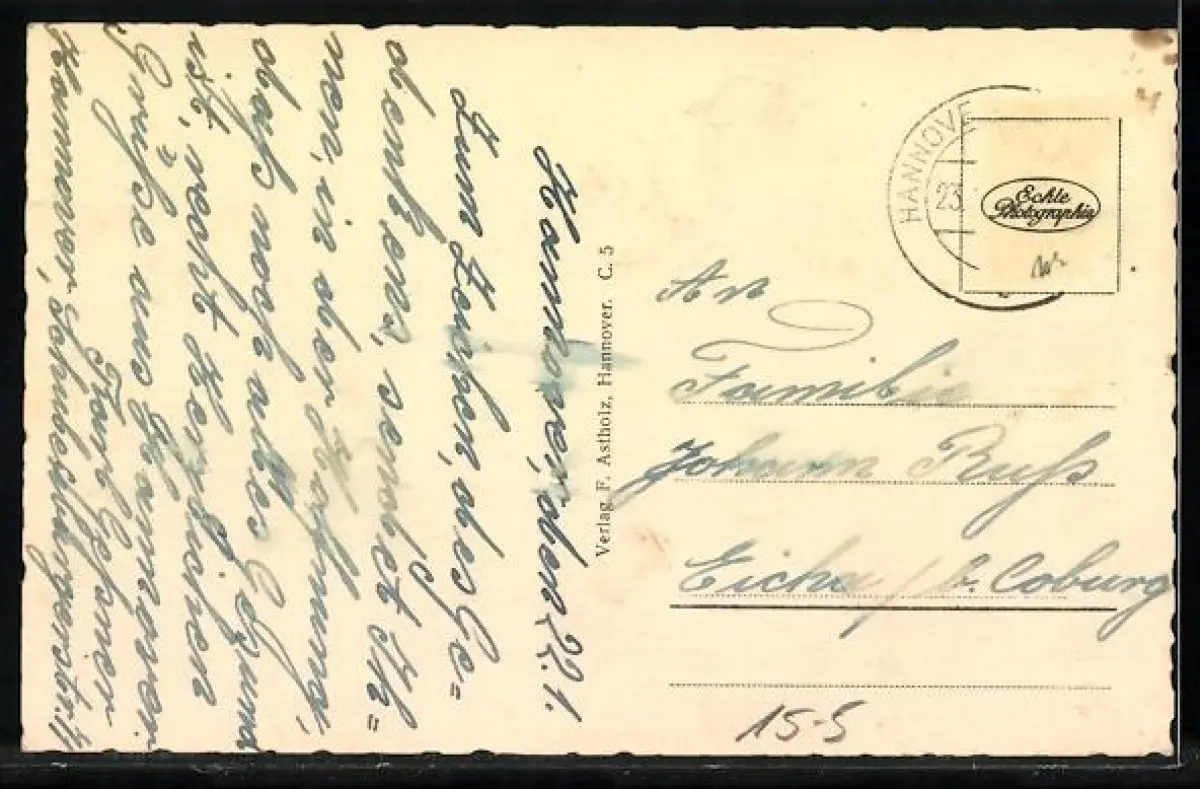 Hannover, den 22.1.
Zum Zeichen, des Ge=
denkens, sendet Ih=
nen, in der Hoffnung,
daß noch alles Gesund
ist, recht herzlichen
Grüße aus Hannover.
Hannover,
Verlag F. Astholz, Hannover. C. 5
HANNOVE
23
Echte
Photographie
An
Familie
Johann Ruß
Eicha / b. Coburg
15-5